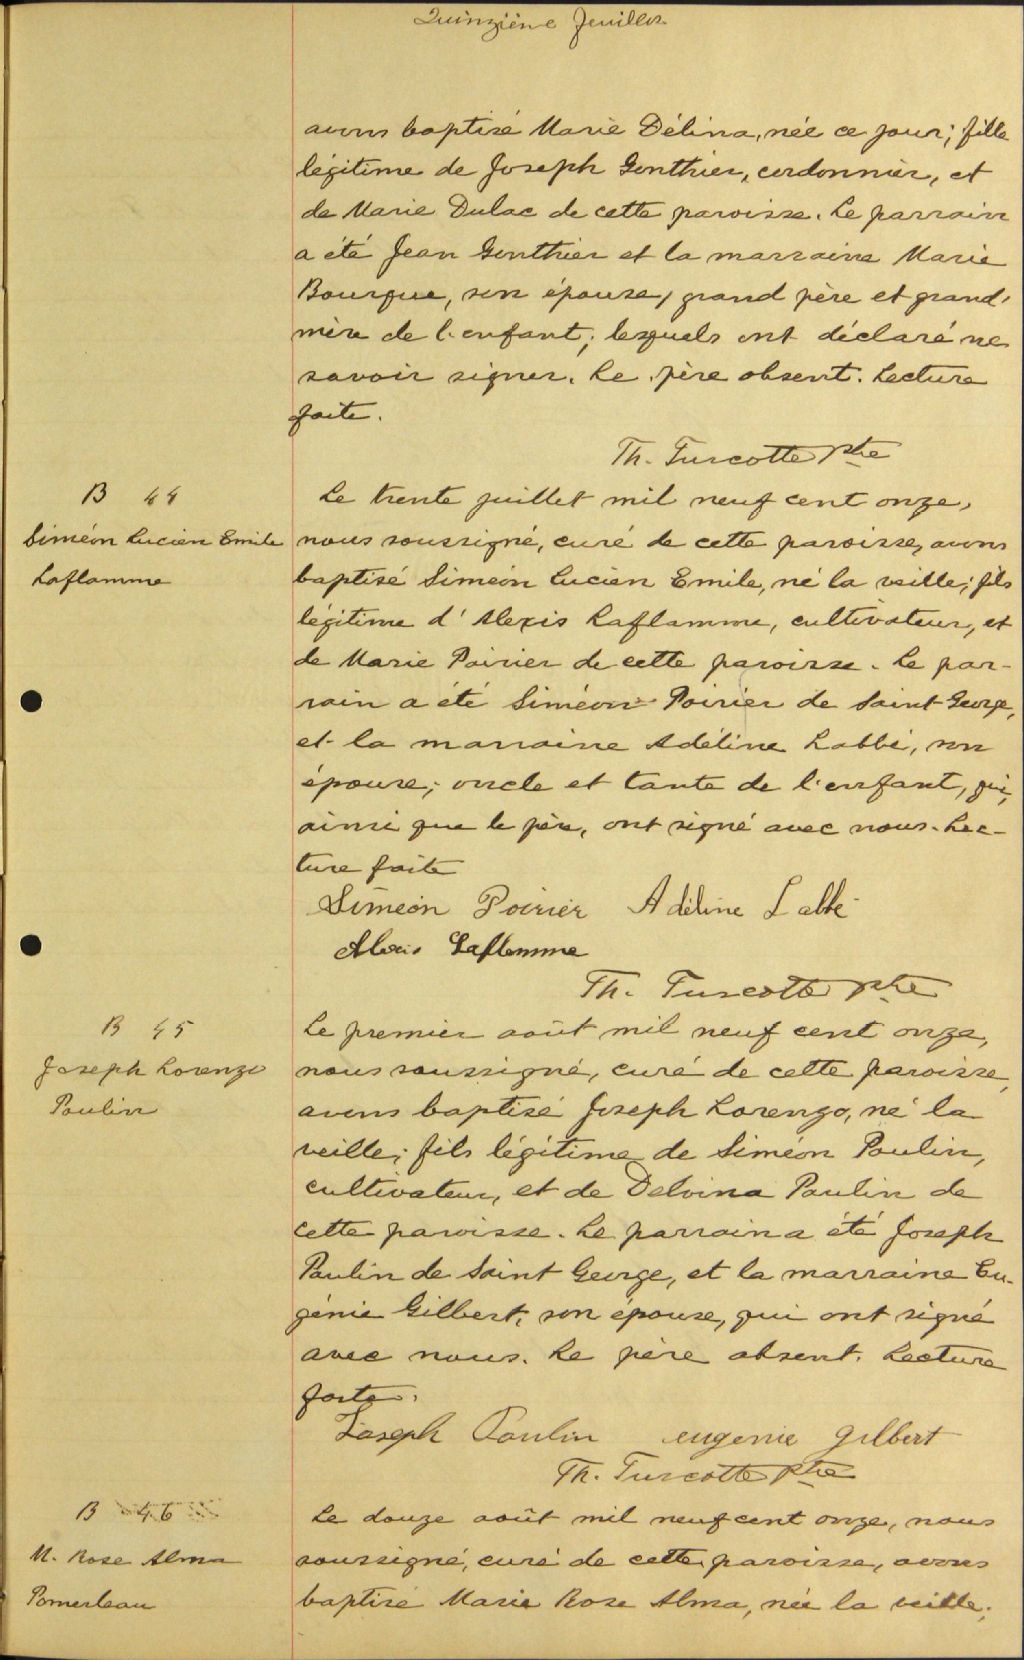 Quinzième feuillet
avons baptisé Marie Délina, née ce jour; fille
légitime de Joseph Gonthier, cordonnier, et
de Marie Dulac de cette paroisse. Le parrain
a été Jean Gonthier et la marraine Marie
Bourque, son épouse, grand père et grand'
mère de l'enfant; lesquels ont déclaré ne
savoir signer. Le père absent. Lecture
faite.
Th. Turcotte Ptre
B 44
Siméon Lucien Emile
Laflamme
Le trente juillet mil neuf cent onze,
nous soussigné, curé de cette paroisse, avons
baptisé Siméon Lucien Emile, né la veille; fils
légitime d'Alexis Laflamme, cultivateur, et
de Marie Poirier de cette paroisse. Le par-
rain a été Siméon Poirier de Saint-George,
et la marraine Adéline Labbé, son
épouse; oncle et tante de l'enfant, qui,
ainsi que le père, ont signé avec nous. Lec-
ture faite
Siméon Poirier Adéline Labbé
Alexis Laflamme
Th. Turcotte Ptre
B 45
Joseph Lorenzo
Poulin
Le premier août mil neuf cent onze,
nous soussigné, curé de cette paroisse,
avons baptisé Joseph Lorenzo, né la
veille; fils légitime de Siméon Poulin,
cultivateur, et de Delvina Poulin de
cette paroisse. Le parrain a été Joseph
Poulin de Saint George, et la marraine Eu-
génie Gilbert, son épouse, qui ont signé
avec nous. Le père absent. Lecture
faite.
Joseph Poulin eugenie gilbert
Th. Turcotte Ptre
B 46
M. Rose Alma
Pomerleau
Le douze août mil neuf cent onze, nous
soussigné, curé de cette paroisse, avons
baptisé Marie Rose Alma, née la veille;